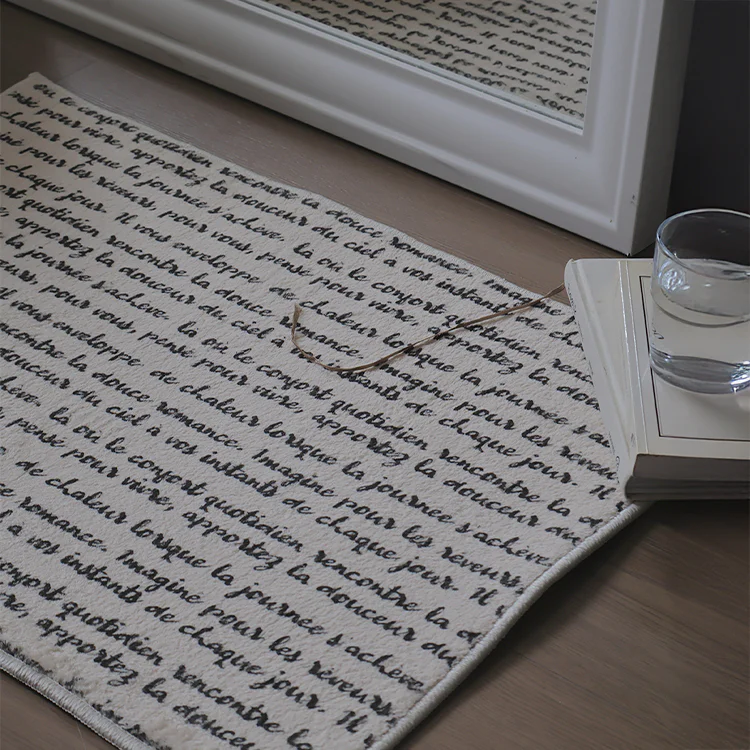 où le confort quotidien rencontre la douce romance. Imaginé
nsé pour vivre, apportez la douceur du ciel à vos instants de
chaleur lorsque la journée s'achève. là où le confort quotidien
iné pour les rêveurs, pour vous, pensé pour vivre, apportez la douceur
chaque jour. Il vous enveloppe de chaleur lorsque la journée
quotidien rencontre la douce romance. Imaginé pour les rêveurs
, apportez la douceur du ciel à vos instants de chaque jour. Il
la journée s'achève. là où le confort quotidien rencontre la
eurs, pour vous, pensé pour vivre, apportez la douceur du
vous enveloppe de chaleur lorsque la journée s'achève
encontre la douce romance. Imaginé pour les rêveurs
douceur du ciel à vos instants de chaque jour. Il
là où le confort quotidien rencontre la
pensé pour vivre, apportez la douceur du
de chaleur lorsque la journée s'achève
romance. Imaginé pour les rêveurs,
à vos instants de chaque jour. Il
onfort quotidien rencontre la
re, apportez la douceur